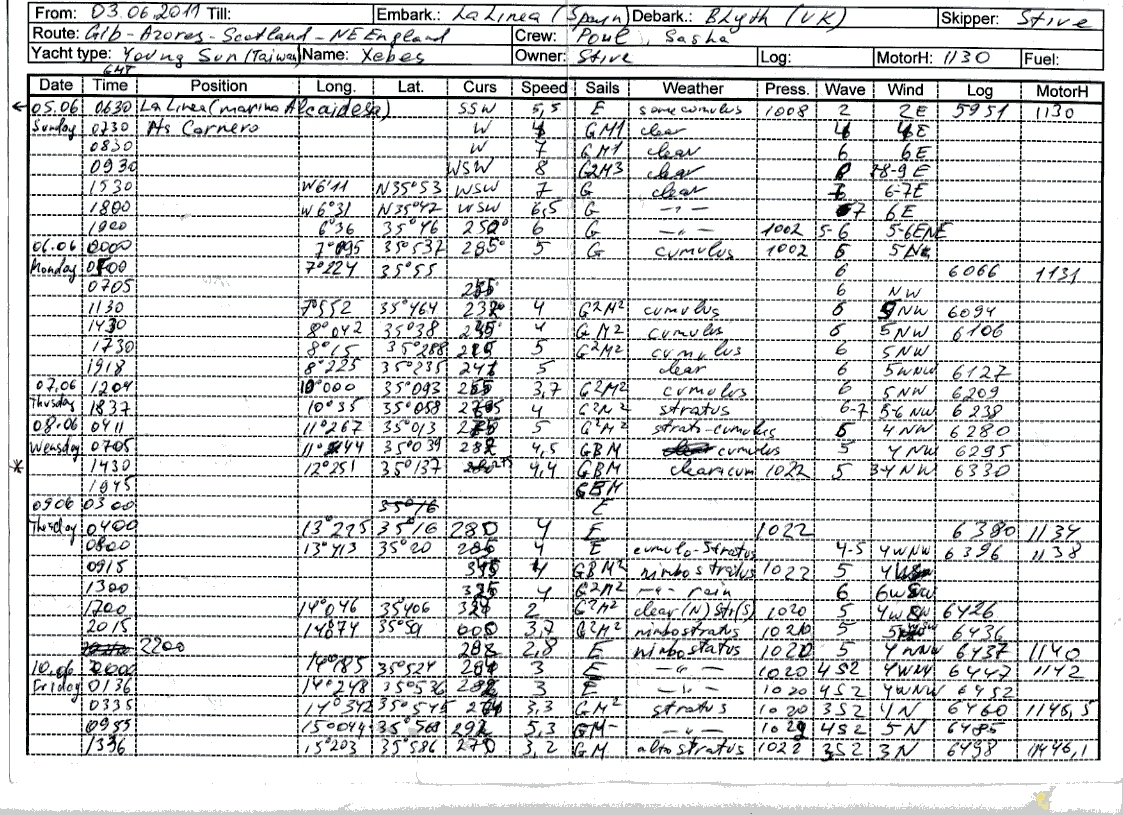 From: 03.06.2011 Till: Embark.: La Linea (Spayn) Debark.: Blyth (UK) Skipper: Stive
Route: Gib-Azores-Scotland-NE England Crew: Poul, Sasha
Yacht type: Young Sun (Taiwan) Name: Xebes Owner: Stive Log: MotorH: 1130 Fuel:
GMT
Date Time Position Long. Lat. Curs Speed Sails Weather Press. Wave Wind Log MotorH
05.06 0630 La Linea (marina Alcaidesa) SSW 5,5 E some cumulus 1008 2 2E 5951 1130
Sunday 0730 Hs Carnero W 4 GM1 clear 4 4E
0830 W 7 GM1 clear 6 6E
0930 WSW 8 G2M3 clear 8-9 E
1530 W6°11 N35°53 WSW 7 G clear 6-7E
1800 W6°31 N35°42 WSW 6,5 G -"- 7 6E
1900 6°36 35°46 250° 6 G -"- 1002 5-6 5-6ENE
06.06 0000 7°095 35°537 285° 5 G cumulus 1002 6
Monday 7°224 35°55 6 6066 1131
0705 6 NW
1130 7°552 35°464 4 G2M2 cumulus 6 5NW 6094
1430 8°042 35°38 4 GM2 cumulus 6 5NW 6106
1730 8°15 35°288 5 G2M2 cumulus 6 5NW
1918 8°225 35°235 5 clear 6 5WNW 6127
07.06 1204 10°000 35°093 3,7 G2M2 cumulus 6 5NW 6209
Thusday 1837 10°35 35°058 4 G2M2 stratus 6-7 5-6 NW 6238
08.06 0411 11°267 35°013 5 G2M2 strato-cumulus 4NW 6280
Wensday 0705 35°039 4,5 GBM cumulus 5 4NW 6295
1430 12°251 35°137 4,4 GBM 1022 5 3-4 NW 6330
1945 GBM
09.06 0300 35°16 E
Thusday 0400 13°275 35°16 280 4 E 1022 6380 1134
0800 13°413 35°20 4 E cumulo-Stratus 4-5 4WNW 6396 1138
0915 4 GBM2 nimbostratus 1022 5
1300 325 4 G2M2 -"- rain 6
1700 14°046 35°406 2 G2M2 clear(N) Str(S) 1020 5 6426
2015 14°074 35°50 3,7 G2M2 nimbostratus 1020 5 6436
2200 2,8 E nimbostatus 1020 5 6437 1140
10.06 14°185 35°524 3 E -"- 1020 4S2 4WNW 6447 1142
Friday 0136 14°248 35°536 3 E -"- 1020 4S2 4WNW 6452
0335 14°342 35°545 3,3 GM2 stratus 1020 3S2 4N 6460 1146,5
0955 15°044 35°568 292 5,3 GM- -"- 4S2 5N 6485
1336 15°203 35°586 270 3,2 GM altostratus 1022 3S2 3N 6498 1146,1